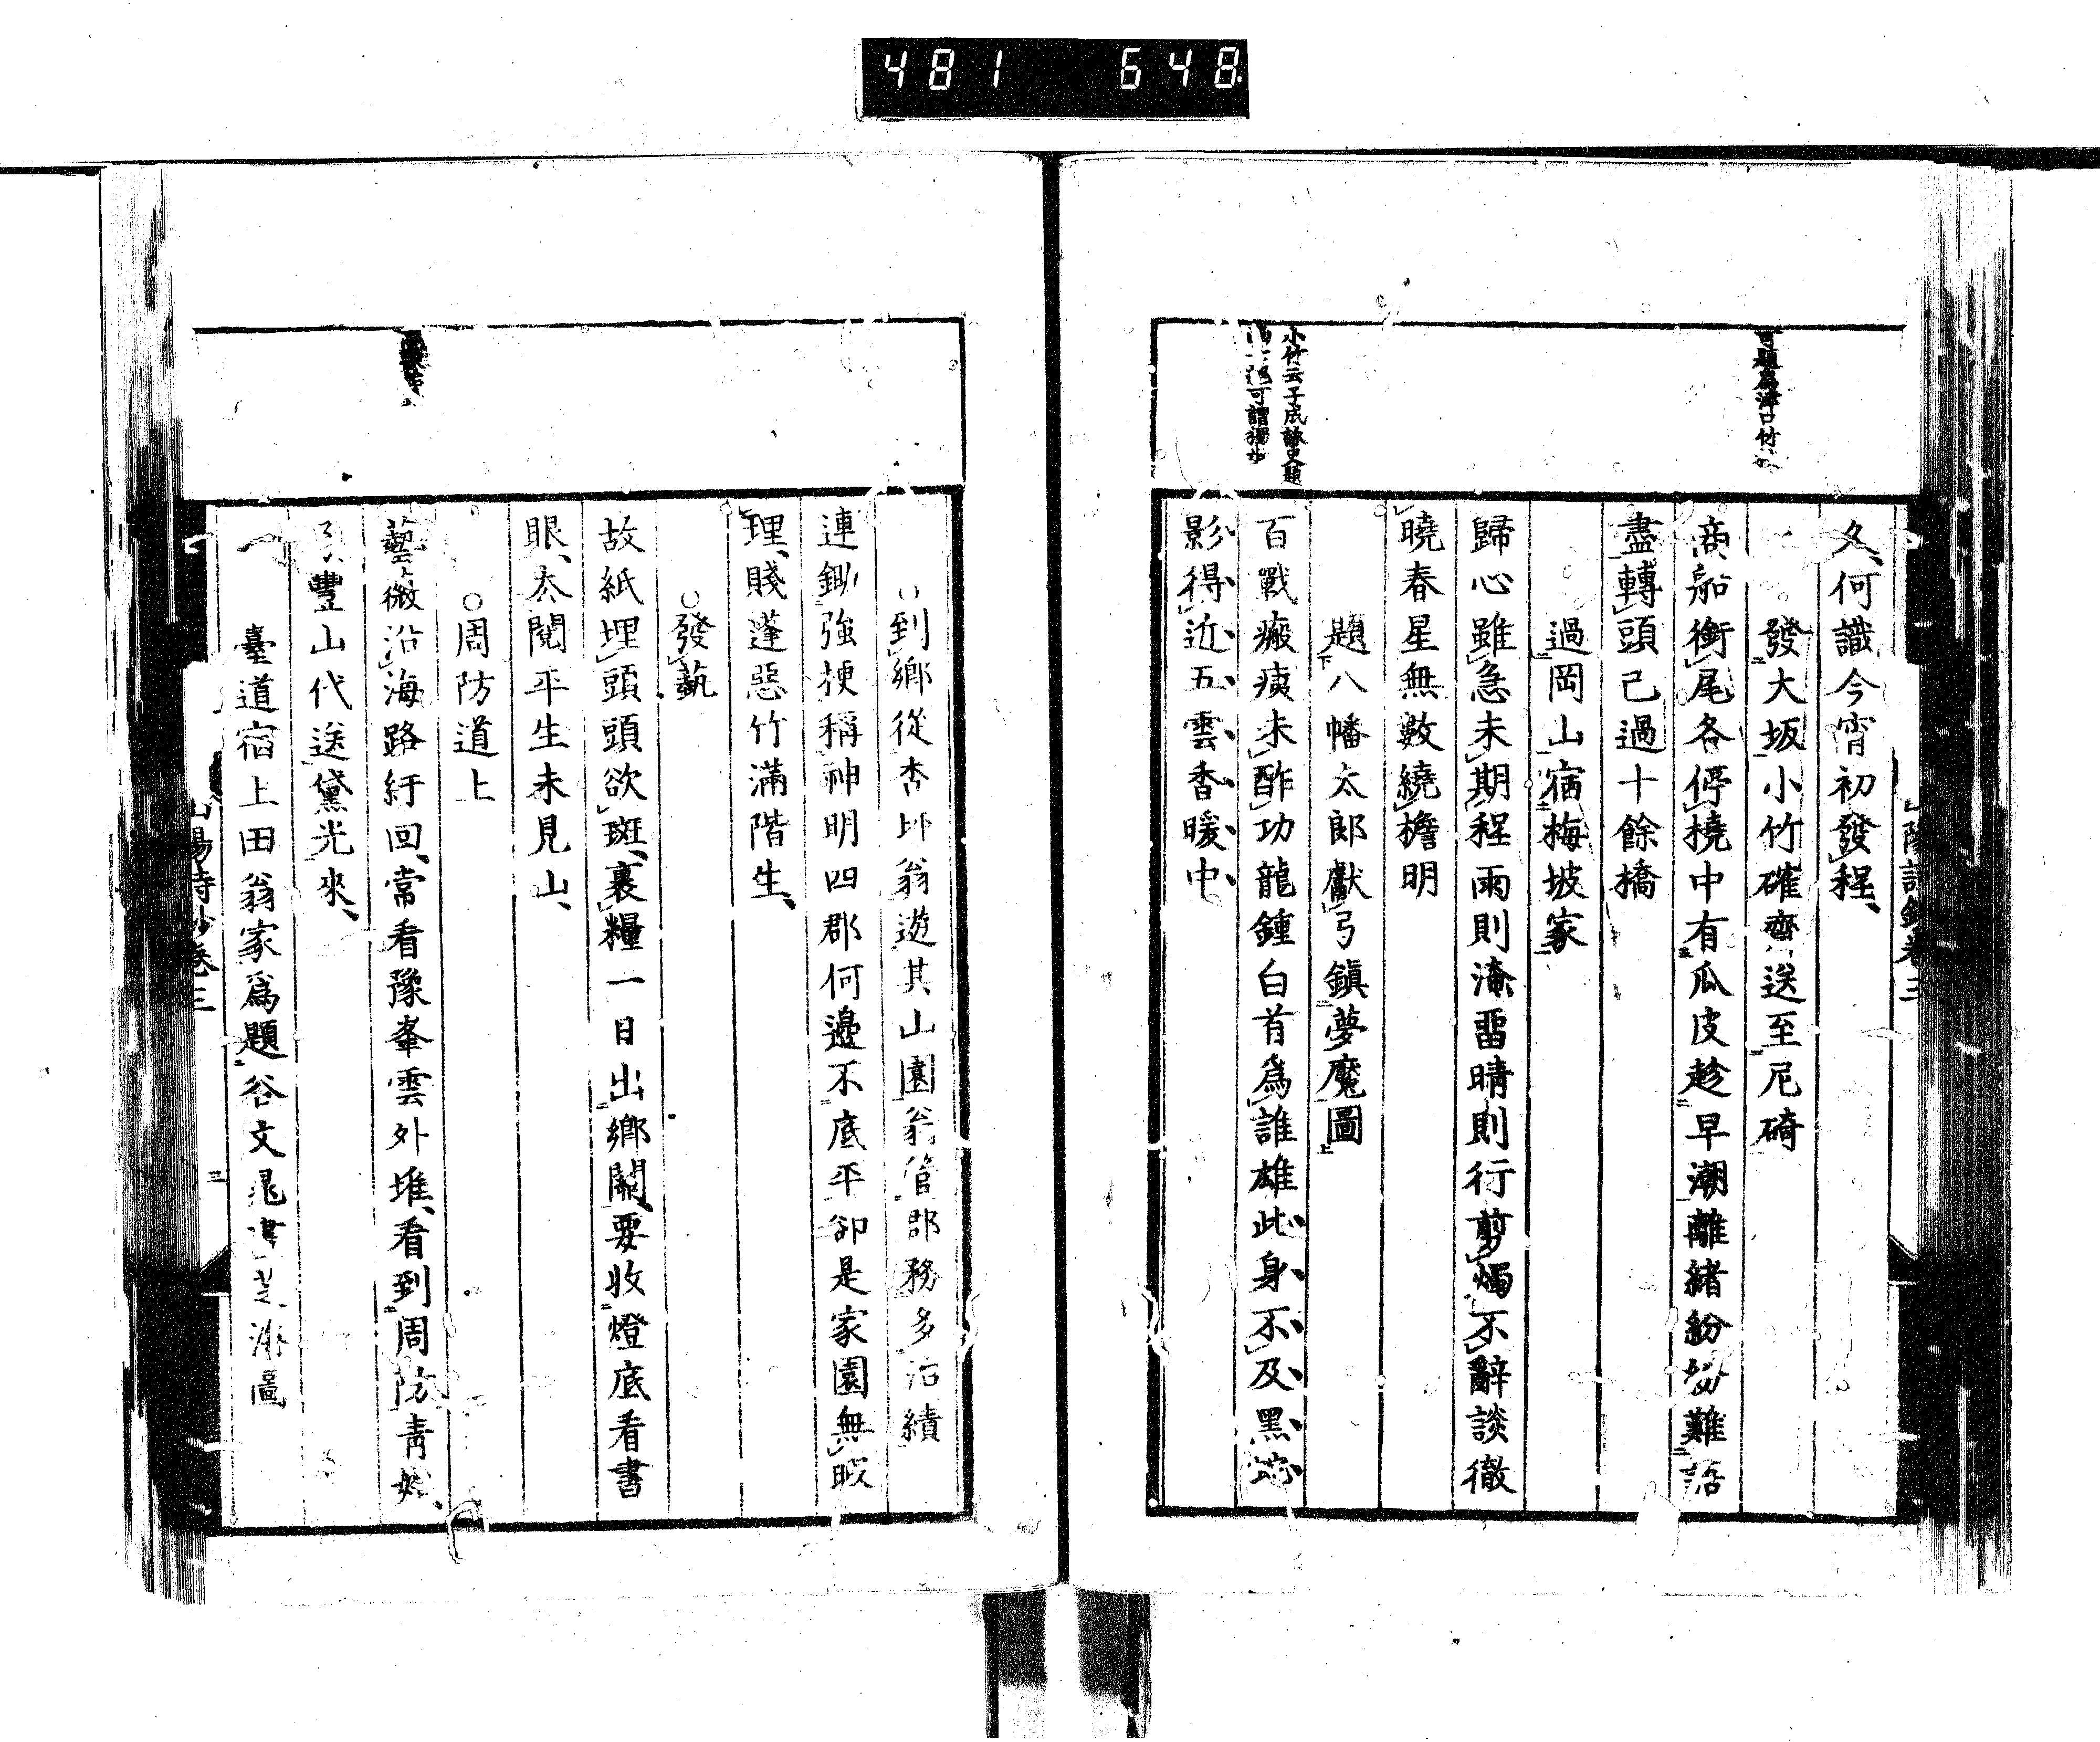 481 648
久何識今宵初發程
發大坂小竹確齋送至尼碕
商船銜尾各停橈中有瓜皮趁早潮離緒紛紛難話
盡轉頭已過十餘橋
過岡山宿梅坡家
歸心雖急未期程雨則淹留晴則行剪燭不辭談徹
曉春星無數繞檐明
題八幡太郎獻弓鎭夢魔圖
百戰瘢痍未酢功龍鍾白首爲誰雄此身不及黑蛇
影得近五雲香暖中
小竹云子成詠史題
可謂獨步
到鄉從杏坪翁遊其山園翁管郡務多治績
連鋤強梗稱神明四郡何邊不底平卻是家園無暇
理賤蓬惡竹滿階生
○發藝
故紙埋頭頭欲斑裹糧一日出鄉關要收燈底看書
眼太閱平生未見山
○周防道上
藝薇沿海路紆回常看豫峯雲外堆看到周防靑始
豐山代送黛光來
臺道宿上田翁家爲題谷文晁圖
山陽詩鈔卷三
三